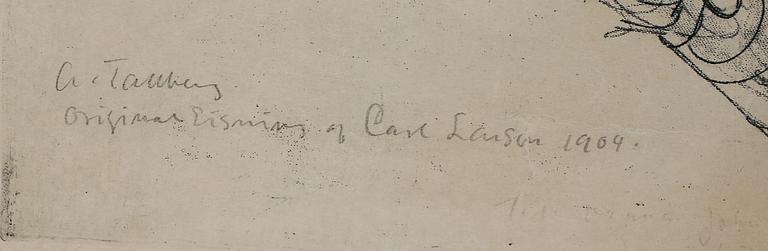 A. Tallberg
Original Etsning af Carl Larson 1904.